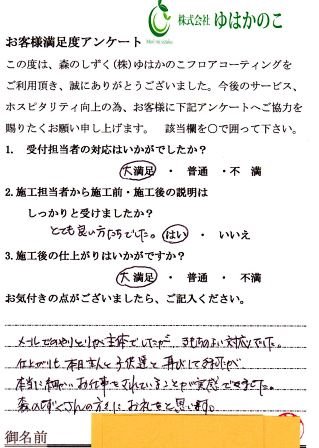 株式会社 ゆはかのこ
お客様満足度アンケート
この度は、森のしずく(株)ゆはかのこフロアコーティングを
ご利用頂き、誠にありがとうございました。今後のサービス、
ホスピタリティ向上の為、お客様に下記アンケートへご協力を
賜りたくお願い申し上げます。 該当欄を○で囲って下さい。
1. 受付担当者の対応はいかがでしたか?
大満足 ・ 普通 ・不 満
2.施工担当者から施工前・施工後の説明は
しっかりと受けましたか?
とても良い方たちでした。 はい ・ いいえ
3.施工後の仕上がりはいかがですか?
大満足 ・ 普通 ・ 不満
お気付きの点がございましたら、ご記入ください。
メールでのやりとりが主体でしたが 対応でした。
仕上がりも、本日主人と子供達と
本当に細かいお仕事をされていることが実感できました。
森のしずくさんの方々にお礼をと思います。
御名前